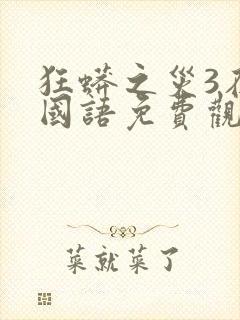 狂蟒之災3在
國語免費觀
菜就菜了